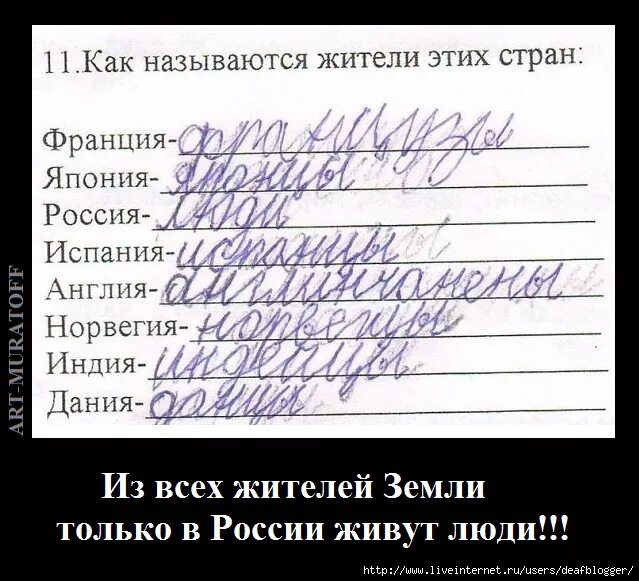 11.Как называются жители этих стран:
Франция-французы
Япония-японцы
Россия-люди
Испания-испанцы
Англия-англинчанены
Норвегия-норвегцы
Индия-индейцы
Дания-данцы
ART-MURATOFF
Из всех жителей Земли
только в России живут люди!!!
http://www.liveinternet.ru/users/deafblogger/